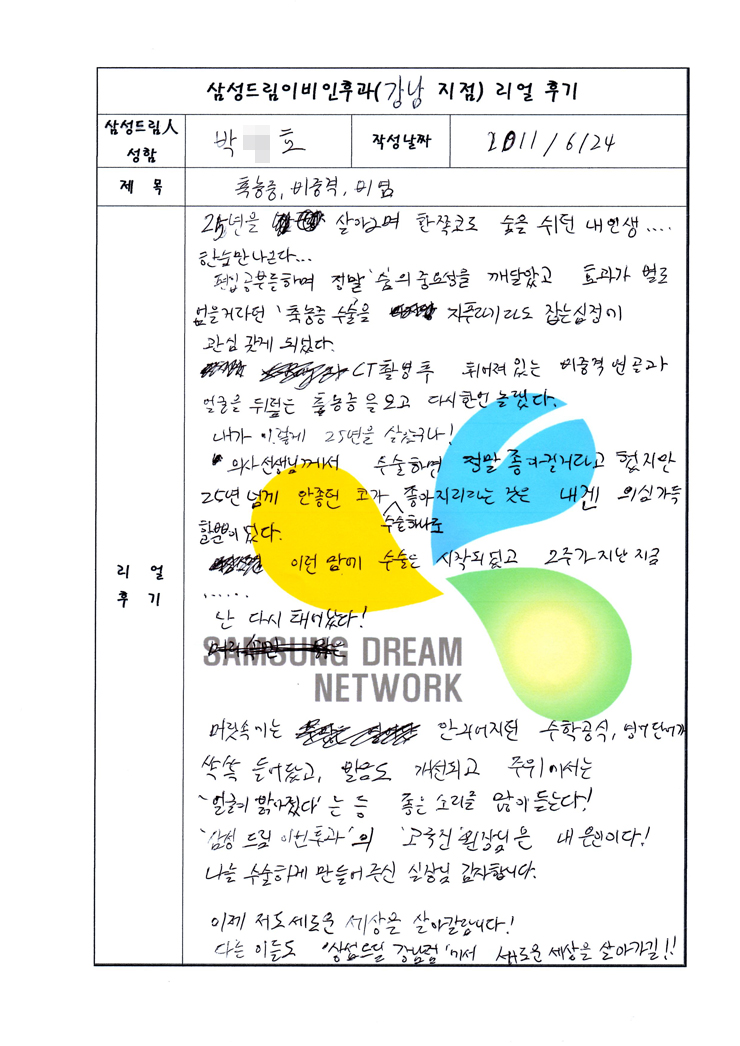 삼성드림이비인후과(강남 지점) 리얼 후기
삼성드림人 성함
박 호
작성날짜
2011/6/24
제 목
축농증, 비중격, 비염
리 얼 후 기
25년을 살아오며 한쪽코로 숨을 쉬던 내인생....
한숨만나온다...
편입공부를하며 정말 '숨'의 중요성을 깨달았고 효과가 별로
없을거라던 '축농증 수술'을 지푸라기라도 잡는심정이
관심 갖게 되었다.
CT촬영후 휘어져 있는 비중격 연골과
얼굴을 뒤덮는 축농증을 보고 다시한번 놀랬다.
내가 이렇게 25년을 살았구나!
의사선생님께서 수술하면 정말 좋아질거라고 했지만
25년 넘게 안좋던 코가 수술하나로 좋아지리라는 것은 내겐 의심가득
할뿐이었다.
이런 맘에 수술은 시작되었고 2주가 지난 지금
......
난 다시 태어났다!
SAMSUNG DREAM
NETWORK
머릿속에는 안외어지던 수학공식, 영어단어가
쏙쏙 들어왔고, 발음도 개선되고 주위에서는
'얼굴이 밝아졌다'는 등 좋은 소리를 많이 듣는다!
'삼성 드림 이비인후과'의 원장님은 내 은인이다!
나를 수술하게 만들어주신 실장님 감사합니다.
이제 저도 새로운 세상을 살아갈랍니다!
다른 이들도 '삼성드림 강남점'에서 새로운 세상을 살아가길!!